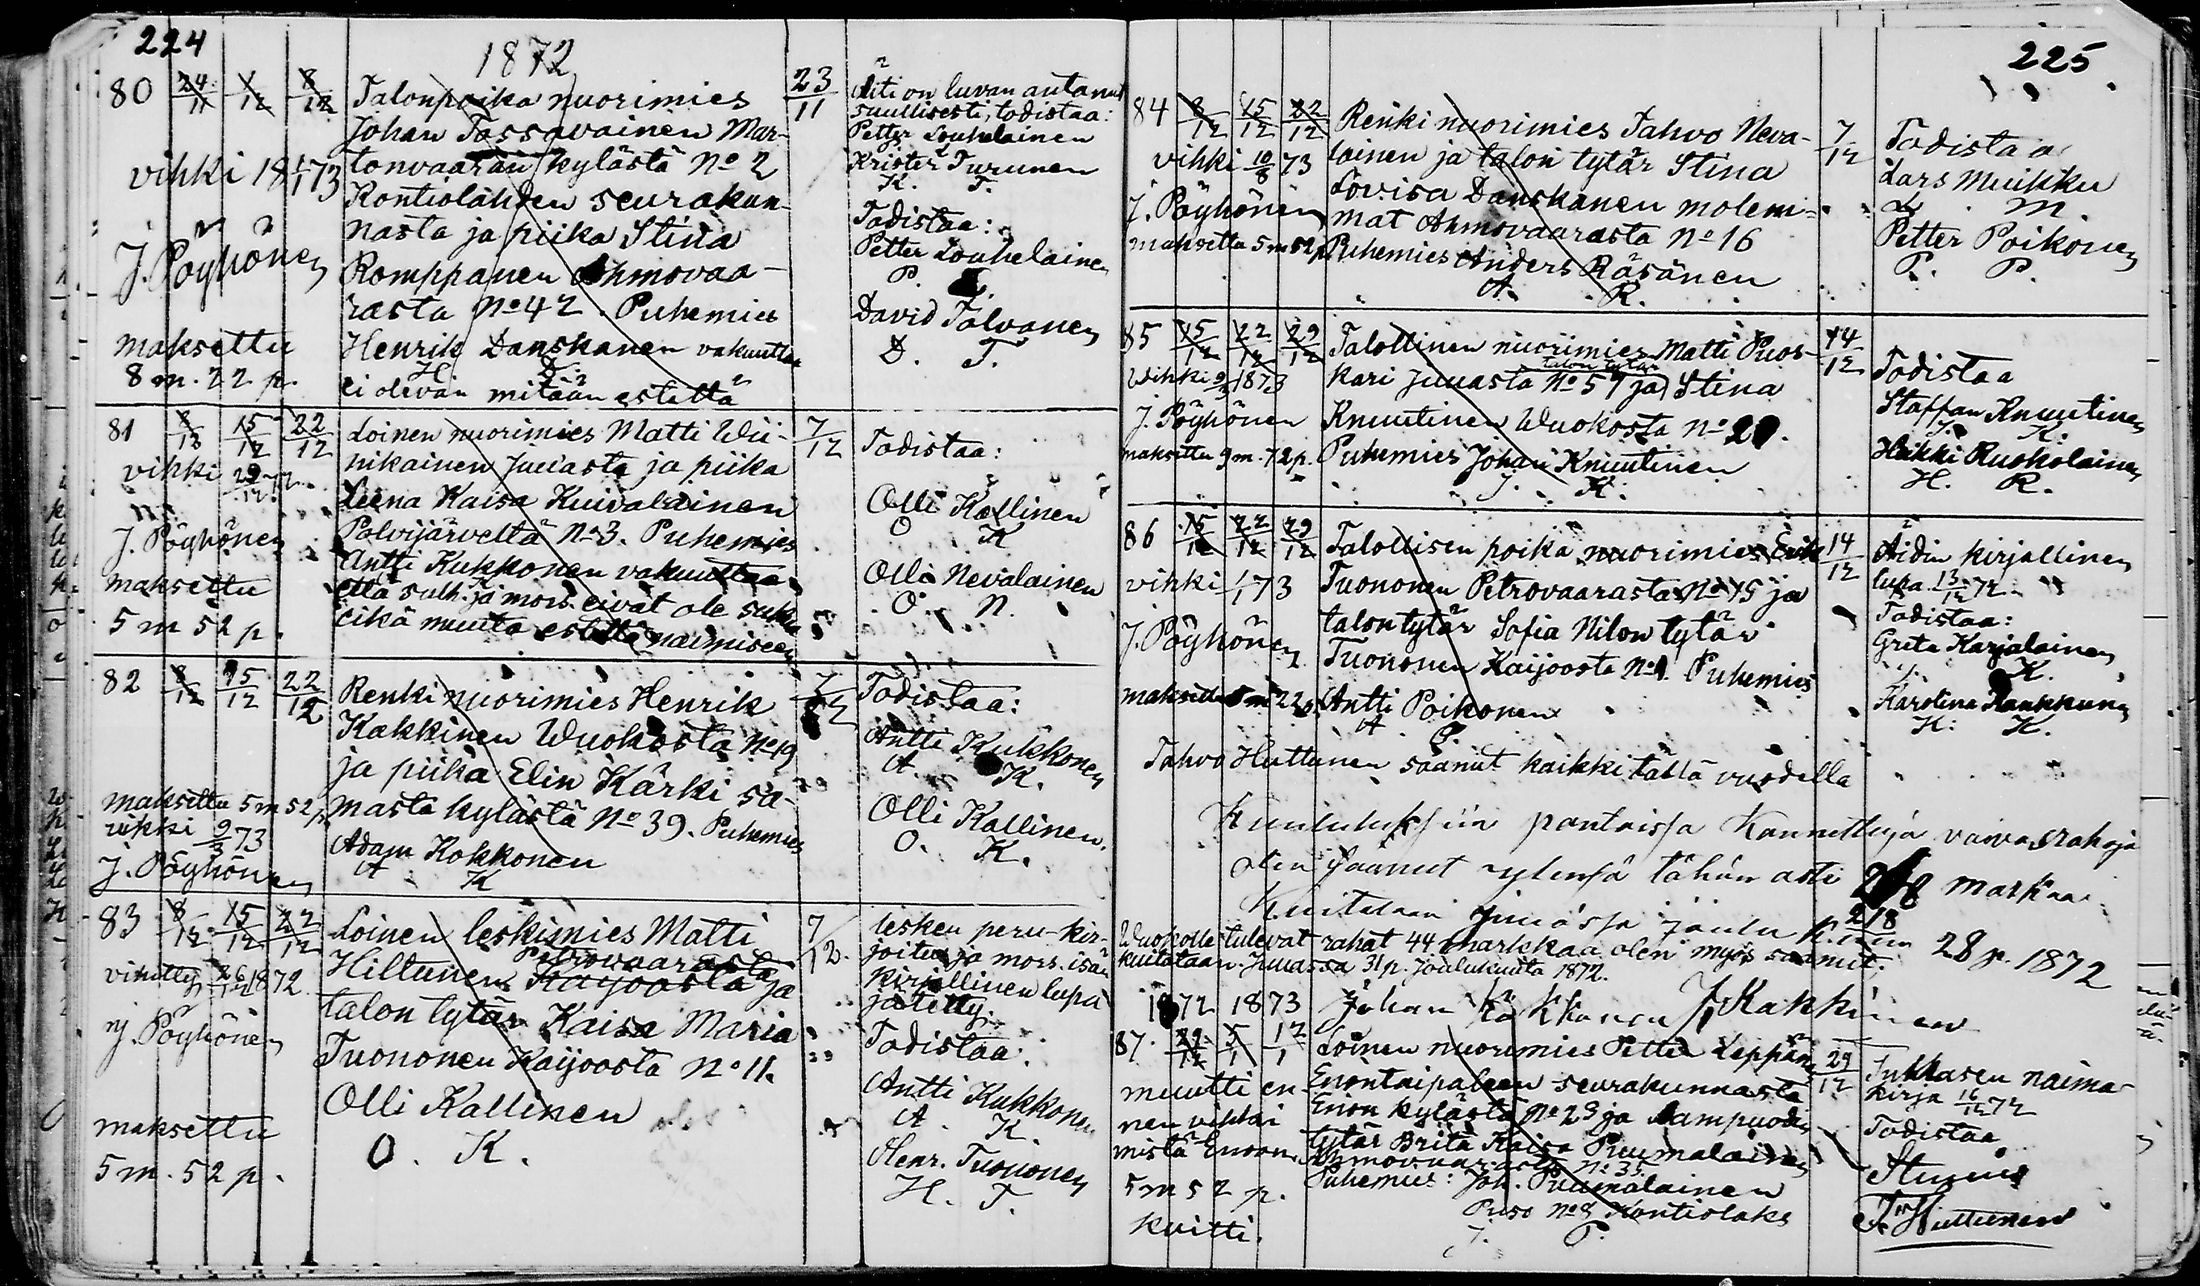 224
1872
80 24/11 1/12 8/12 Talonpoika nuorimies 23/11 Äiti on luvan antanut
Johan Tossavainen Mar- suullisesti, todistaa:
Petter Louhelainen
vihki 18 1/1 73 tonvaaran kylästä No 2 Krister Turunen
K. T.
Kontiolahden seurakun-
nasta ja piika Stina Todistaa:
J. Pöyhönen Romppanen Ahmovaa- Petter Louhelainen
P. L.
rasta No 42. Puhemies David Tolvanen
maksettu Henrik Danskanen vakuuttaa D. T.
H D.
8 m. 22 p. ei olevan mitään estettä
81 8/12 15/12 22/12 Loinen nuorimies Matti Wii- 7/12 Todistaa:
vihki 29/12 72. nikainen Juuasta ja piika
Leena Kaisa Kuivalainen Olli Kallinen
O K
J. Pöyhönen Polvijärveltä No 3. Puhemies
Antti Kukkonen vakuuttaa Olli Nevalainen
maksettu että sulh. ja mors. eivät ole sukua O. N.
5 m 52 p. eikä muuta estettä naimiseen
82 8/12 15/12 22/12 Renki nuorimies Henrik 7/12 Todistaa:
Kakkinen Wuokosta No 19 Antti Kukkonen
A. K.
ja piika Elin Kärki sa-
maksettu 5 m 52 p. masta kylästä No 39. Puhemies Olli Kallinen.
O. K.
vihki 9/3 73 Adam Kokkonen
A K
J. Pöyhönen
83 8/12 15/12 22/12 Loinen leskimies Matti 7/12. lesken peru-kir-
Petrovaarasta joitus ja mors. isän
vihitty 26/12 1872 Hiltunen Kaijoosta ja kirjallinen lupa
jätetty.
J. Pöyhönen talon tytär Kaisa Maria Todistaa:
Tuononen Kaijoosta No 11. Antti Kukkonen
A. K.
Olli Kallinen
maksettu O. K. Henr. Tuononen
5 m. 52 p. H. T.
225
84 8/12 15/12 22/12 Renki nuorimies Tahvo Neva- 7/12 Todistaa
vihki 10/8 73 lainen ja talon tytär Stina Lars Muikku
L. M.
J. Pöyhönen Lovisa Danskanen molem-
maksettu 5 m 52 p. mat Ahmovaarasta No 16 Petter Poikonen
P. P.
Puhemies Anders Räsänen
A. R.
85 15/12 22/12 29/12 Talollinen nuorimies Matti Puos- 14/12 Todistaa
talon tytär
Wihki 9/3 1873 kari Juuasta No 57 ja Stina Staffan Knuutinen
K.
J. Pöyhönen Knuutinen Wuokosta No 20.
maksettu 9 m. 72 p. Puhemies Johan Knuutinen Heikki Ruokolainen
J. K. H. R.
86 15/12 22/12 29/12 Talollisen poika nuorimies Erik 14/12 Äidin kirjallinen
vihki 1/1 73 Tuononen Petrovaarasta No 15 ja lupa 13/12 72
Todistaa:
J. Pöyhönen talon tytär Sofia Nilon tytär Greta Karjalainen
K.
Tuononen Kaijoosta No 1. Puhemies Karolina Kaukkunen
K. K.
Antti Poikonen
A P.
Tahvo Huttunen saanut kaikki tällä vuodella
Kuulutuksiin pantaissa Kannettuja vaivasrahoja
olen saanut tähän asti 218 markaa
218
Kuitataan Juuassa joulu k. 28 p. 1872
Wuokolle tulevat rahat 44 markkaa olen myös saanut.
kuitataan. Juuassa 31 p. Joulukuuta 1872.
1872 1873 Johan J. Kakkinen
87. 29/12 5/1 12/1 Loinen nuorimies Petter Leppänen 29/12 Sulhasen naima-
kirja 16/12 72
muutti en Enontaipaleen seurakunnasta
Todistaa
nen vihki Enon kylästä No 23 ja kampuodi
mistä Enoon. tytär Brita Kaisa Puumalainen
Ahmovaarasta No 35
5 m 52 p. Puhemies: Joh. Puumalainen
Puso No 8 Kontiolaks
kvitti. J. P. T. Huttunen